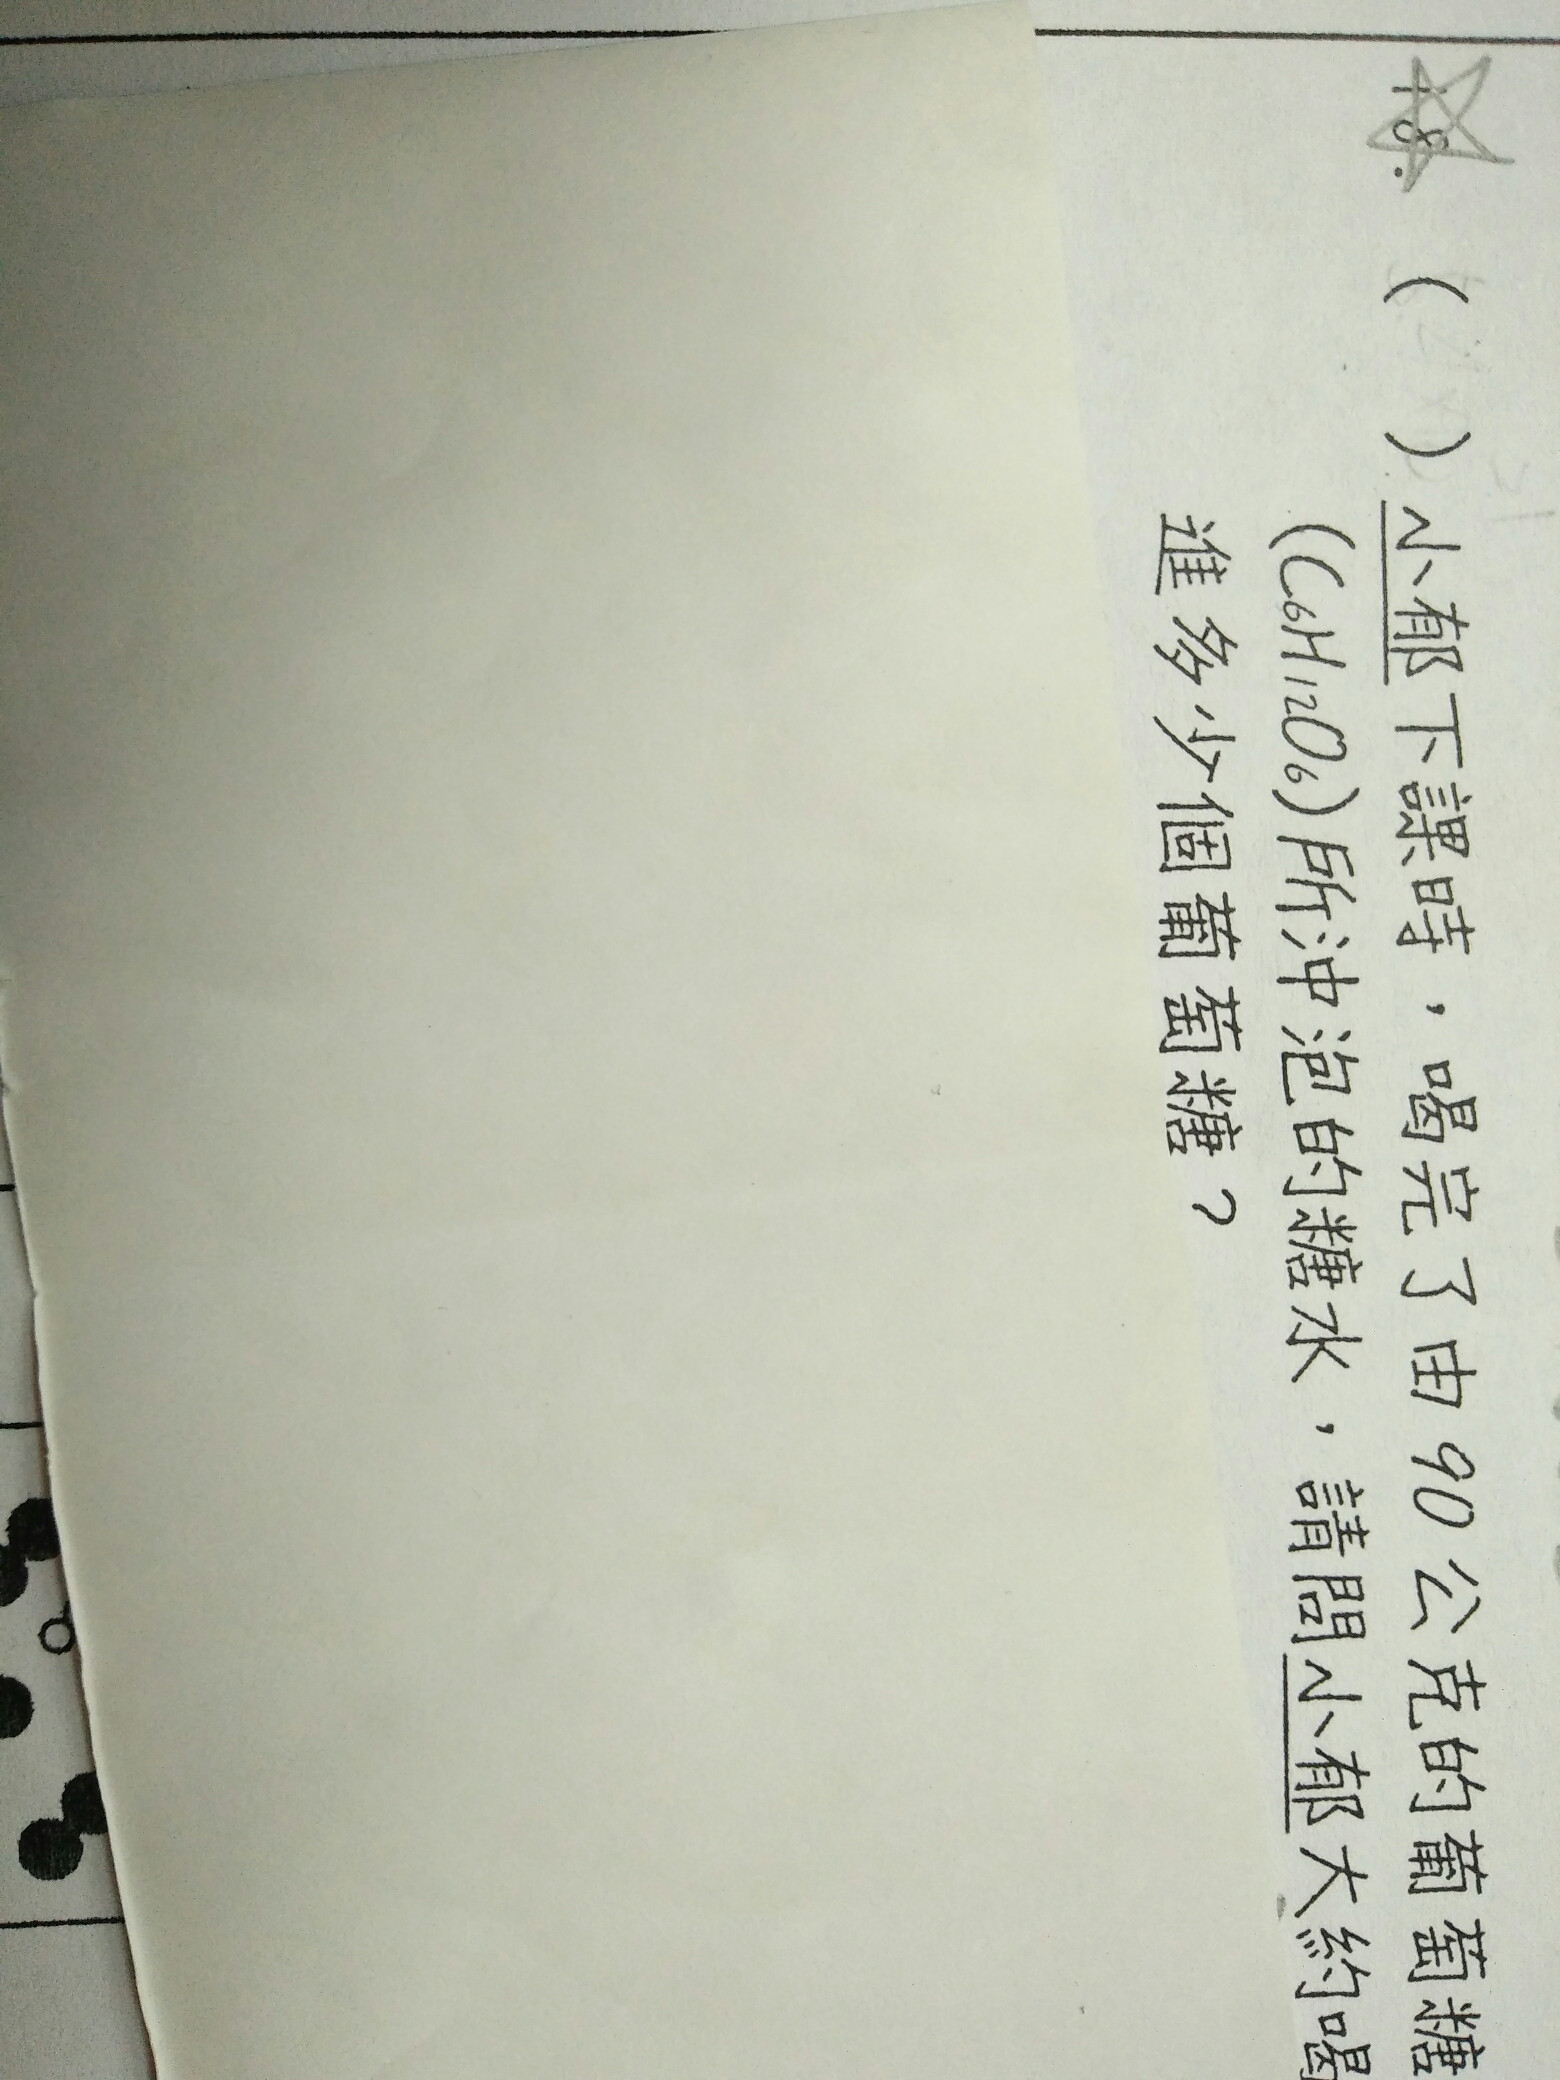 18. (    ) 小郁下課時，喝完了由90公克的葡萄糖
(C₆H₁₂O₆)所沖泡的糖水，請問小郁大約喝
進多少個葡萄糖？